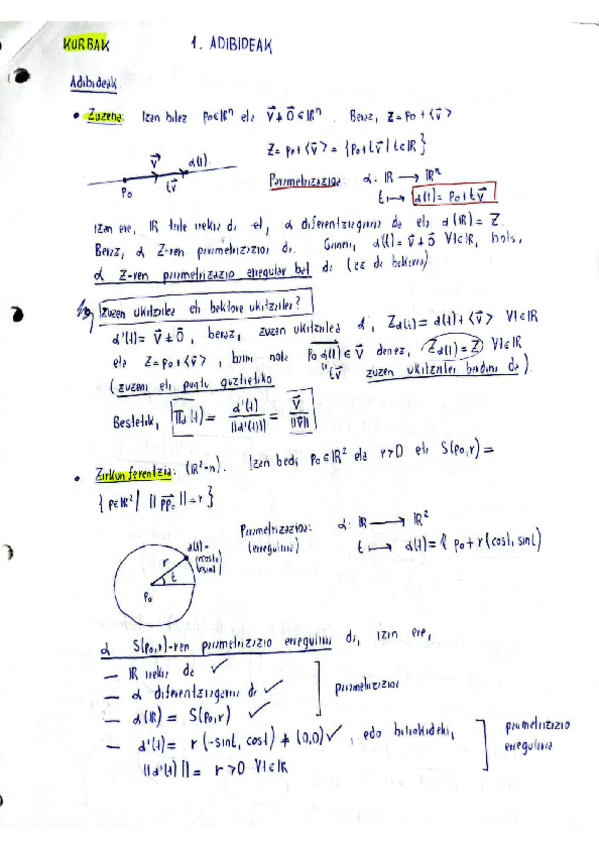 KURBAK 1. ADIBIDEAK
Adibideak
• Zuzena: Izan bitez p₀∈ℝⁿ eta v⃗≠0⃗∈ℝⁿ. Beraz, Z=p₀+<v⃗>
Z=p₀+<v⃗> = {p₀+tv⃗ | t∈ℝ}
v⃗ α(t)
p₀ tv⃗
Parametrizazioa: α: ℝ → ℝⁿ
t ↦ α(t)=p₀+tv⃗
Izan ere, ℝ tarte irekia da eta, α diferentziagarria da eta α(ℝ)=Z.
Beraz, α Z-ren parametrizazioa da. Gainera, α'(t)=v⃗≠0⃗ ∀t∈ℝ, hots,
α Z-ren parametrizazio erregular bat da (ez da bakarra)
Zuzen ukitzailea eta bektore ukitzailea?
α'(t)=v⃗≠0⃗, beraz, zuzen ukitzailea Z_α(t)=α(t)+<v⃗> ∀t∈ℝ
eta Z=p₀+<v⃗>, baina nola p₀α(t)∈v⃗ denez, Z_α(t)=Z ∀t∈ℝ
tv⃗
(zuzena eta puntu guztietako zuzen ukitzailea berdina da).
Bestetik, 𝕋_α(t) = α'(t)/||α'(t)|| = v⃗/||v⃗||
• Zirkunferentzia: (ℝ²-n). Izan bedi p₀∈ℝ² eta r>0 eta S(p₀,r)=
{p∈ℝ² | ||pp₀||=r}
Parametrizazioa: α: ℝ → ℝ²
(erregularra) t ↦ α(t)= p₀+r(cost, sint)
α(t)=
(rcost,
rsint)
r
t
p₀
α S(p₀,r)-ren parametrizazio erregularra da, izan ere,
— ℝ irekia da ✓
— α diferentziagarria da ✓ parametrizazioa
— α(ℝ) = S(p₀,r) ✓
— α'(t)= r(-sint, cost) ≠ (0,0) ✓, edo baliokideki, parametrizazio
||α'(t)|| = r>0 ∀t∈ℝ erregularra